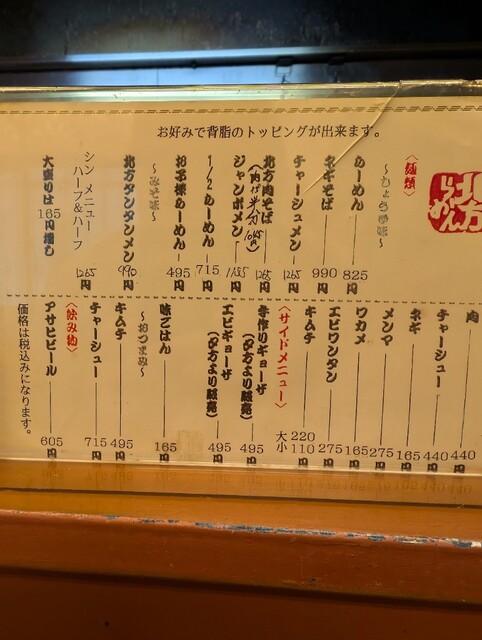 お好みで背脂のトッピングが出来ます。
北方
らーめん
〈麺類〉
～しょうゆ味～
らーめん 825円
ネギそば 990円
チャーシュメン 1265円
北方肉そば 1265円
(肉は半分 1045円)
ジャンボメン 1155円
1/2らーめん 715円
お子様らーめん 495円
～みそ味～
北方タンタンメン 990円
シン メニュー
ハーフ&ハーフ 1265円
大盛りは165円増し
肉 440円
チャーシュー 440円
ネギ 165円
メンマ 275円
ワカメ 165円
エビワンタン 275円
キムチ 大 220円
小 110円
〈サイドメニュー〉
手作りギョーザ 495円
(夕方より販売)
エビギョーザ 495円
(夕方より販売)
味ごはん 165円
～おつまみ～
キムチ 495円
チャーシュー 715円
〈飲み物〉
アサヒビール 605円
価格は税込みになります。